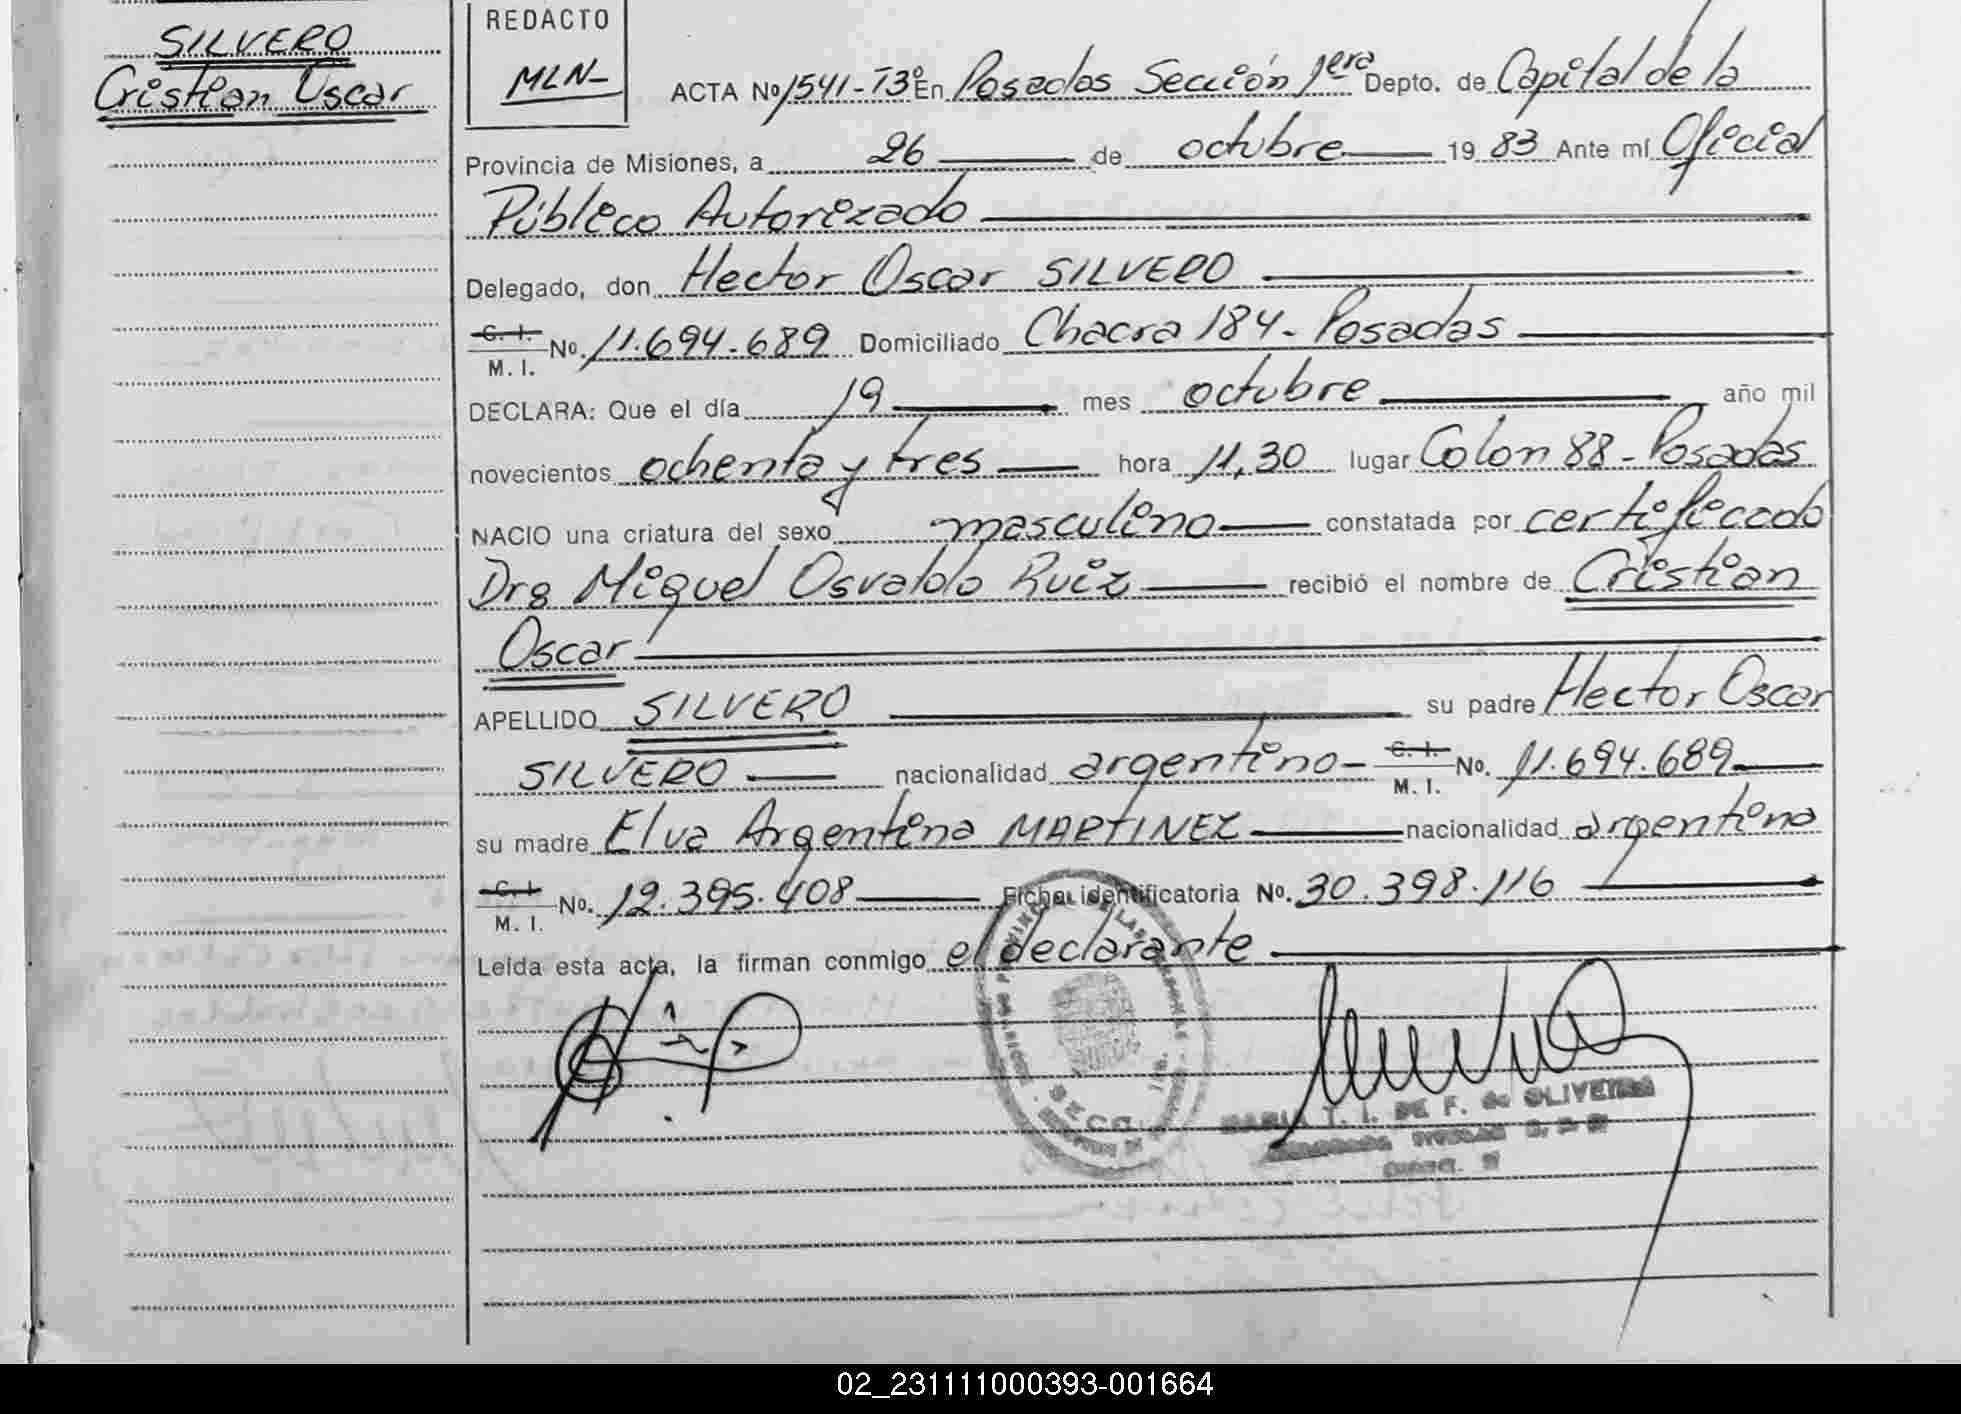 SILVERO
Cristian Oscar
REDACTO
MLN-
ACTA Nº 1541-T3º En Posadas Sección 1era Depto. de Capital de la
Provincia de Misiones, a 26 de octubre 19 83 Ante mí Oficial
Público Autorizado
Delegado, don Hector Oscar SILVERO
C. I.
M. I. No. 11.694.689 Domiciliado Chacra 184- Posadas
DECLARA: Que el día 19 mes octubre año mil
novecientos ochenta y tres hora 11,30 lugar Colon 88- Posadas
NACIO una criatura del sexo masculino constatada por certificado
Dro Miguel Osvaldo Ruiz recibió el nombre de Cristian
Oscar
APELLIDO SILVERO su padre Hector Oscar
SILVERO nacionalidad argentino- C. I. M. I. No. 11.694.689
su madre Elva Argentina MARTINEZ nacionalidad argentina
C. I.
M. I. No. 12.395.408 Ficha identificatoria No. 30.398.116
Leída esta acta, la firman conmigo el declarante
MARIA T. I. DE F. de OLIVEIRA
02_231111000393-001664